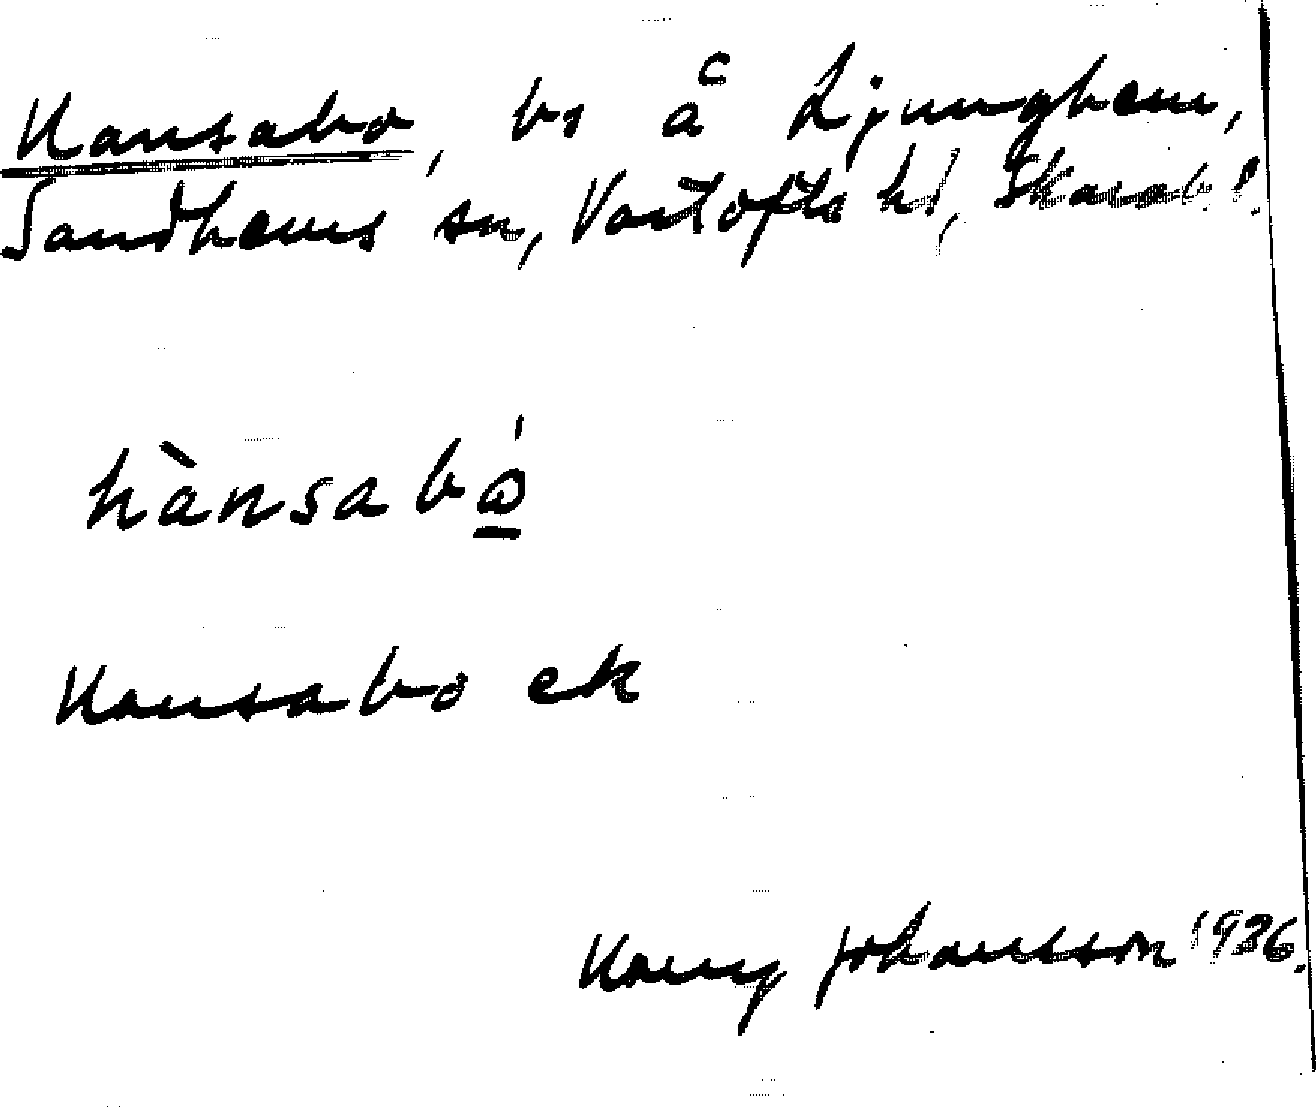 Hansabo, bs å Ljunghem,
Sandhems sn, Vartofta hd, Skarab. l.
hànsabó̲
Hansabo ek
Harry Johansson 1936.